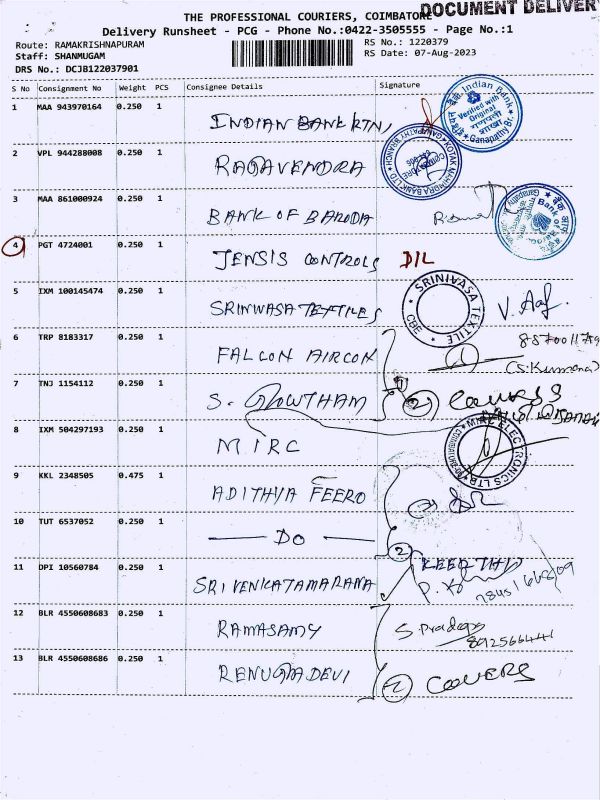 DOCUMENT DELIVER
THE PROFESSIONAL COURIERS, COIMBATORE
Delivery Runsheet - PCG - Phone No.:0422-3505555 - Page No.:1
Route: RAMAKRISHNAPURAM
RS No.: 1220379
Staff: SHANMUGAM
RS Date: 07-Aug-2023
DRS No.: DCJB122037901
S No Consignment No Weight PCS Consignee Details Signature
1 MAA 943970164 0.250 1 INDIAN BANK RTN
Indian Bank Verified with Original Ganapathy Br.
2 VPL 944288008 0.250 1 RAGAVENDRA
KOTAK MAHINDRA BANK LTD GANAPATHY BRANCH COIMBATORE
3 MAA 861000924 0.250 1 BANK OF BARODA
Bank of Baroda
4 PGT 4724001 0.250 1 JENSIS CONTROLS DIL
5 IXM 100145474 0.250 1 SRINIVASA TEXTILES
SRINIVASA TEXTILE CBE
6 TRP 8183317 0.250 1 FALCON AIRCON
7 TNJ 1154112 0.250 1 S. GOWTHAM 2 COVERS
8 IXM 504297193 0.250 1 M.I.R.C
MIRC ELECTRONICS LTD
9 KKL 2348505 0.475 1 ADITHYA FEERO
10 TUT 6537052 0.250 1 DO 2
11 DPI 10560784 0.250 1 SRI VENKATAMARANA
12 BLR 4550608683 0.250 1 RAMASAMY S. Pradeep
892566441
13 BLR 4550608686 0.250 1 RENUGADEVI 2 COVERS